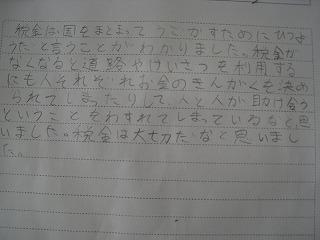 税金は国をまとまってうごかすためにひつよ
うだと言うことがわかりました。税金が
なくなると道路やけいさつを利用する
にも人それぞれお金のきんがくを決め
られてしまったりして、人と人が助け合う
ということをわすれてしまっているなと思
いました。税金は大切だなと思いまし
た。